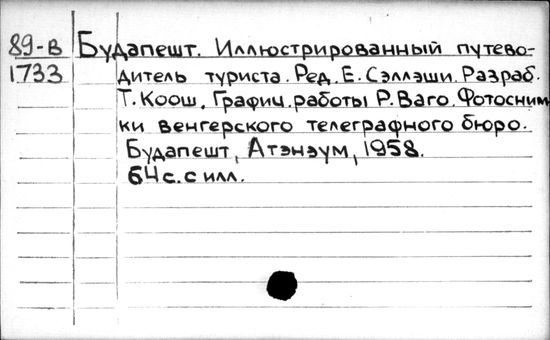 89-в Будапешт. Иллюстрированный путево-
1733 дитель туриста. Ред. Е. Сэллэши. Разраб.
Т. Коош. Графич. работы Р. Ваго. Фотосним
ки венгерского телеграфного бюро.
Будапешт, Атэнэум, 1958.
64 с. с илл.